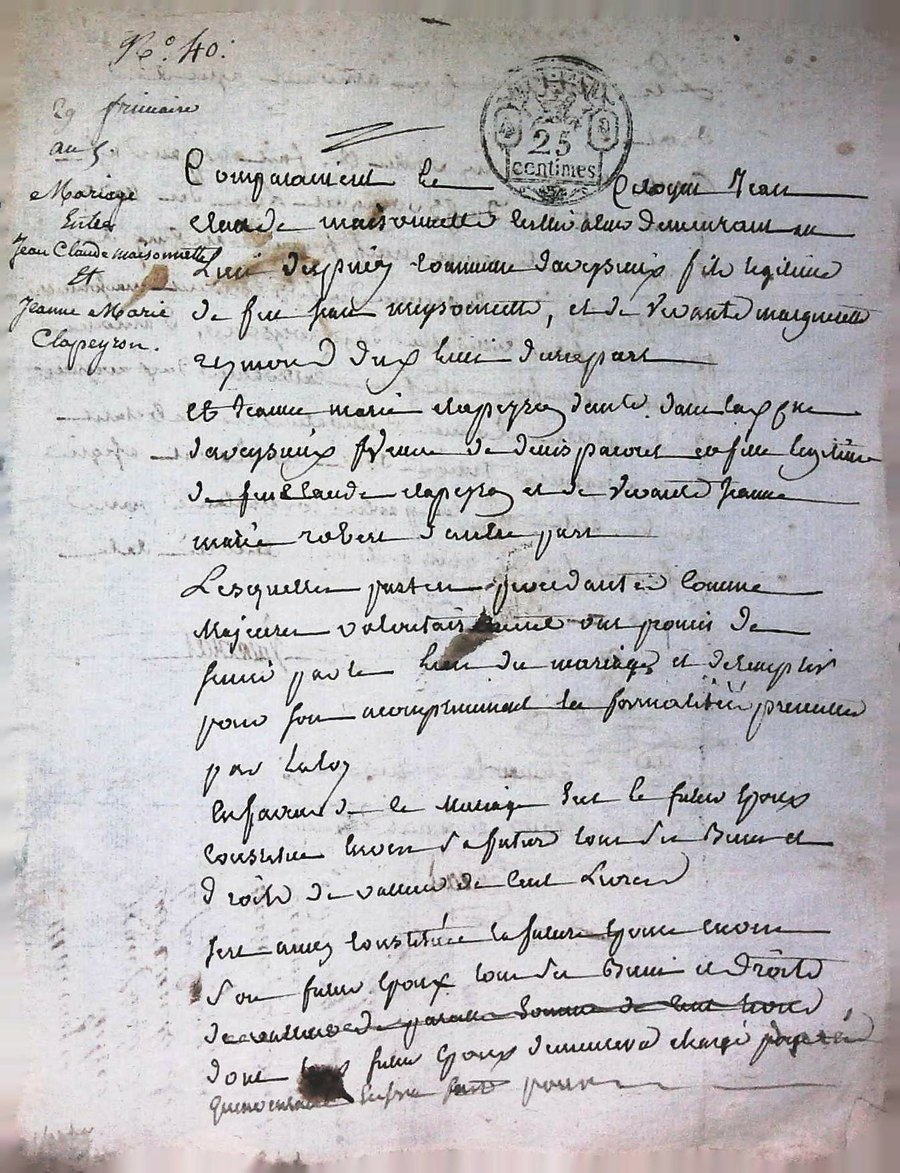 N.º 40.
29 frimaire
an 5
Mariage
Entre
Jean Claude maisonnette
Et
Jeanne Marie
Clapeyron.
25
centimes
Comparament le Citoyen Jean
claude maisonnette Cultivateur demeurant au
Lieu commune daveysieux fils legitime
de feu jean meysonnette, et de vivante marguerite
reymond dud. Lieu dune part
Et Jeanne marie clapeyron dans la
daveysieux veuve de denis et fille legitime
de feu Claude clapeyron et de vivante Jeanne
marie robert d'autre part
Lesquelles parties procedantes comme
Majeures ont promis de
par le Lien du mariage et de remplir
pour son acomplissement les formalités prescrites
par la loy
En faveur de ce Mariage le futur Epoux
Constitue Envers sa future tous ses Biens et
droits de valleur de Cent Livres
constituée la future Epouse envers
son futur Epoux tous ses Biens et Droits
de valleur de pareille Somme de Cent
dont futur Epoux demeurera chargé
pour